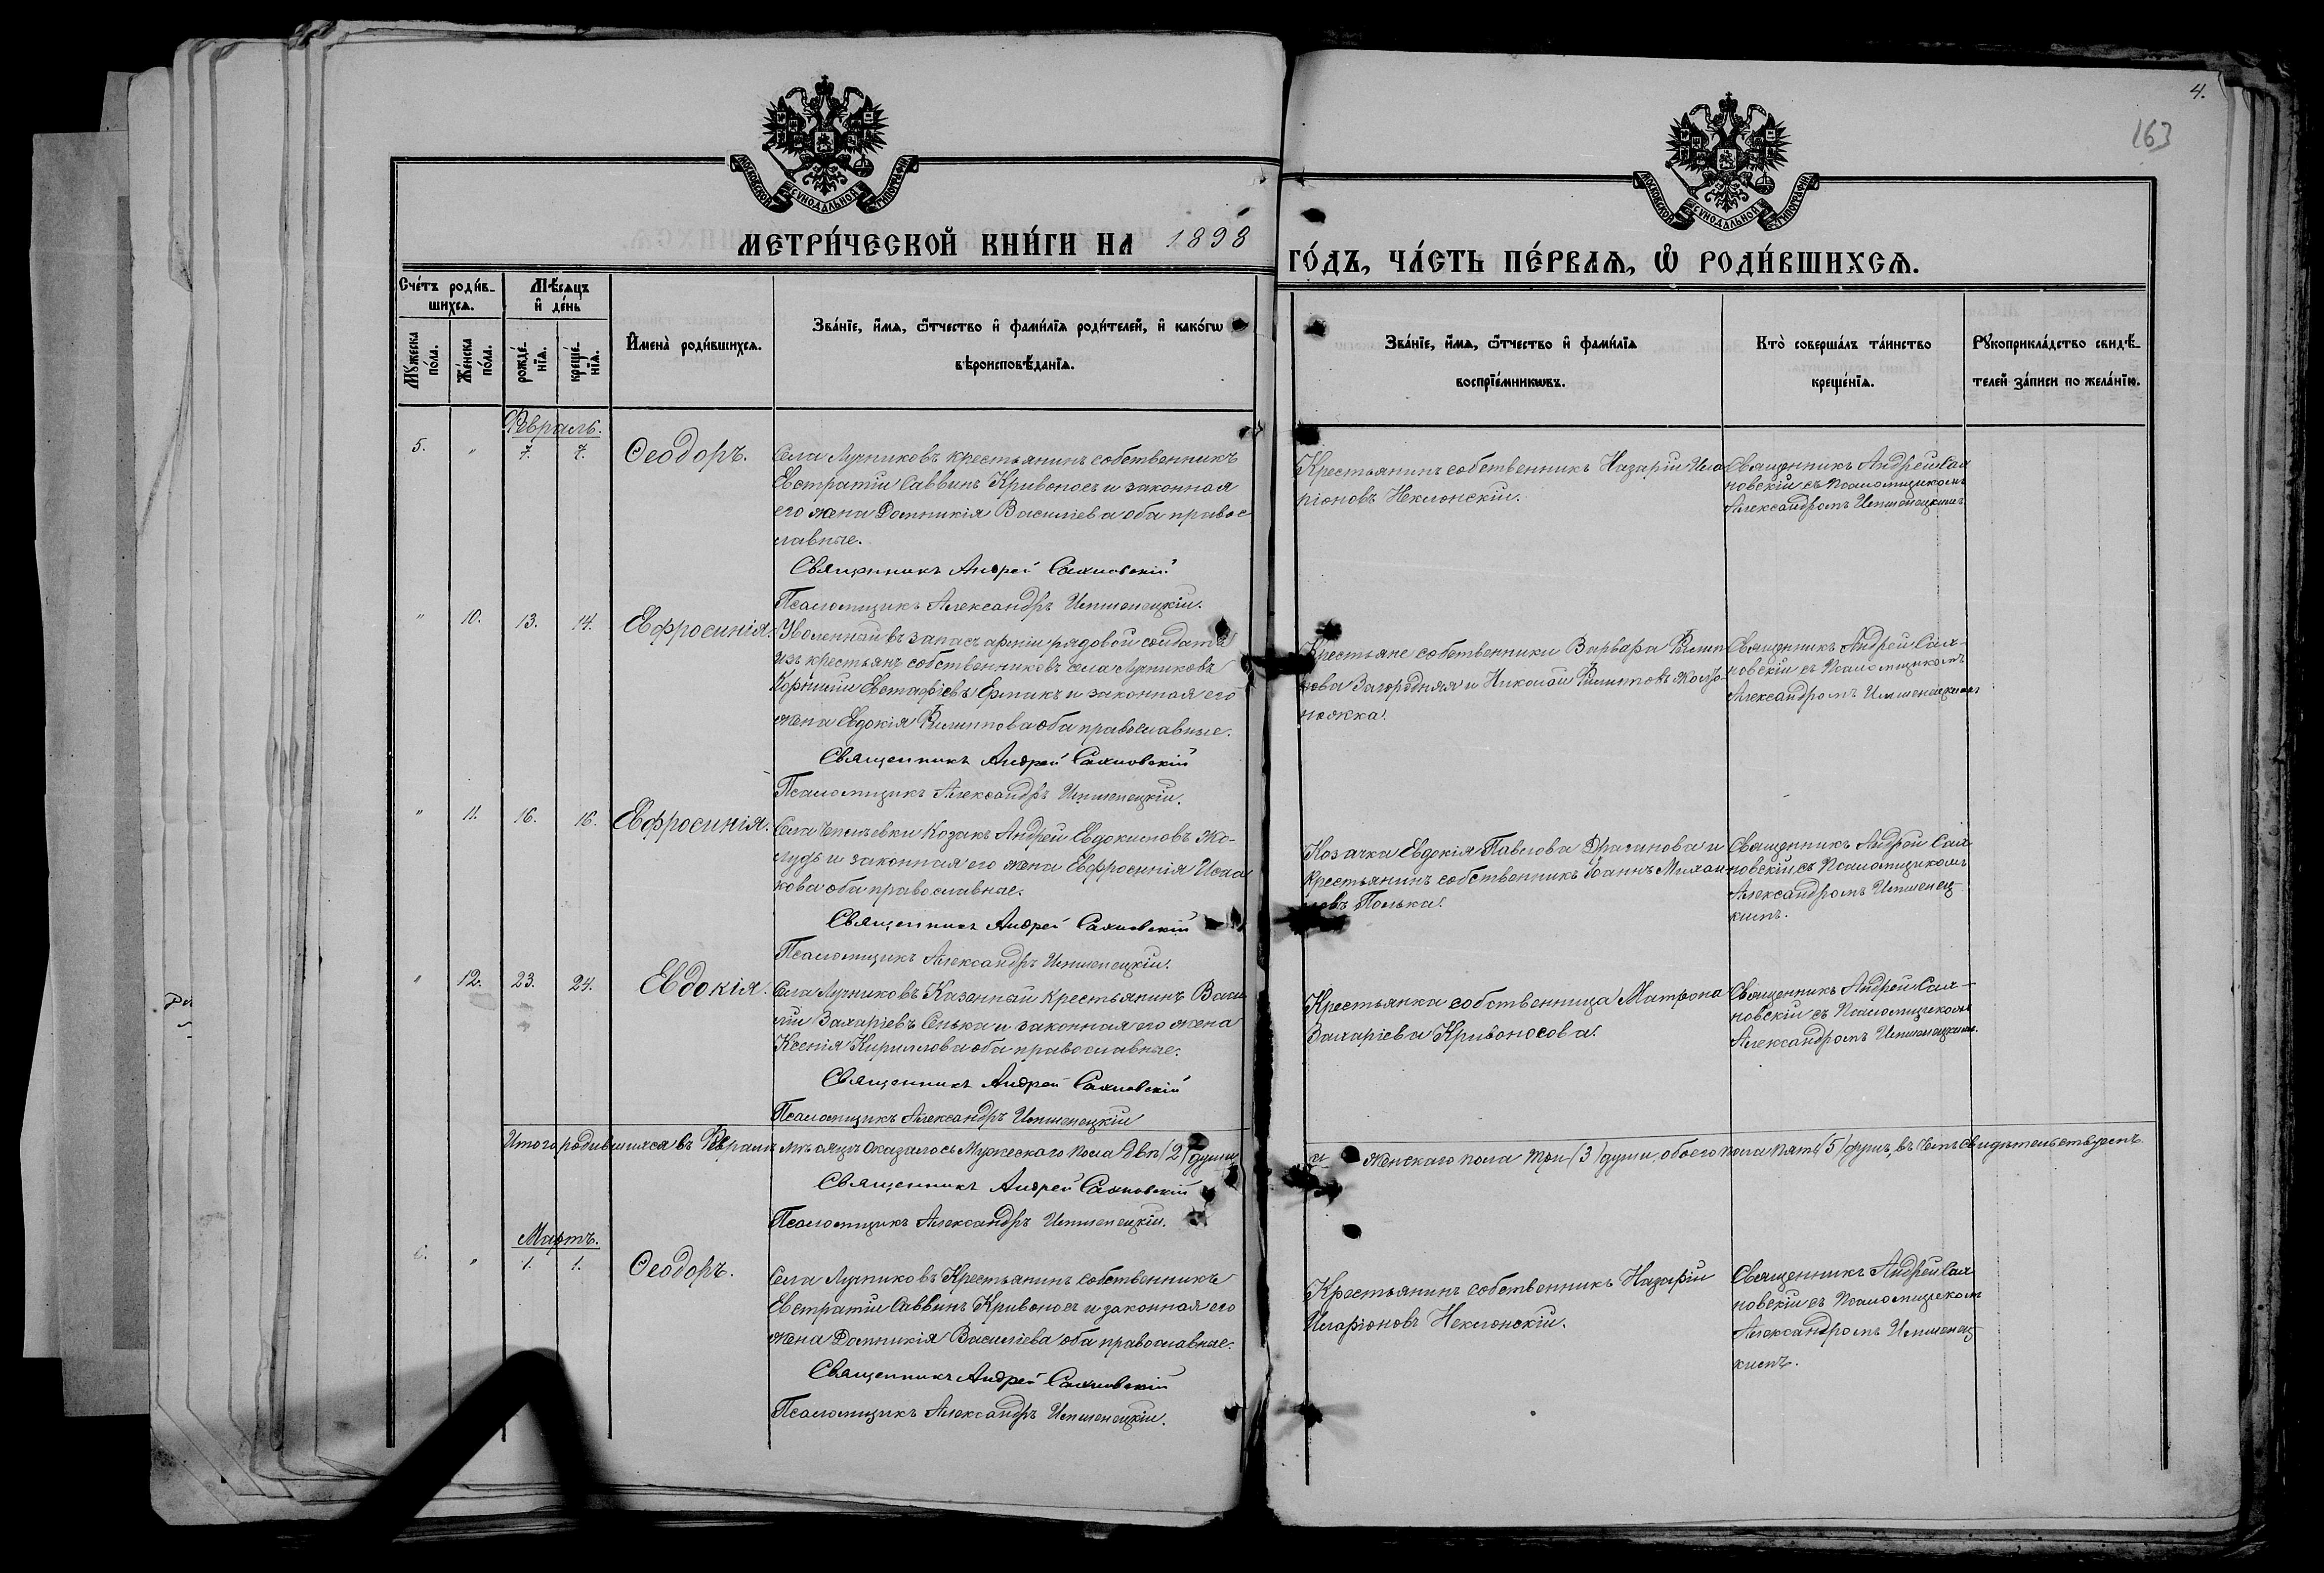 4.
163
МОСКОВСКОЙ СѴНОДАЛЬНОЙ ТИПОГРАФІИ
МОСКОВСКОЙ СѴНОДАЛЬНОЙ ТИПОГРАФІИ
МЕТРИ́ЧЕСКОЙ КНИ́ГИ НА 1898 ГО́ДЪ, ЧА́СТЬ ПЕ́РВАѦ, Ѡ҆ РОДИ́ВШИХСѦ.
Сче́тъ роди́в-
шихсѧ.
Мѣ́сѧцъ
и҆ де́нь
Мꙋ́жеска
по́ла.
Же́нска
по́ла.
рожде́-
нїѧ.
креще́-
нїѧ.
И҆мена̀ роди́вшихсѧ.
Зва́нїе, и҆́мѧ, ѻ҆́тчество и҆ фами́лїѧ роди́телей, и҆ како́гѡ
вѣроисповѣ́данїѧ.
Зва́нїе, и҆́мѧ, ѻ҆́тчество и҆ фами́лїѧ
воспрїе́мникѡвъ.
Кто̀ соверша́лъ та́инство
креще́нїѧ.
Рꙋкоприкла́дство свидѣ́-
телей за́писи по жела́нїю.
Февраль.
5. " 7. 7. Ѳеодоръ.
Села Лучниковъ крестьянинъ собственникъ
Евстратій Саввинъ Кривоносъ и законная
его жена Домникія Василіева оба правос
лавные.
Священникъ Андрей Сахновскій
Псаломщикъ Александръ
Крестьянинъ собственникъ Назарій Ила
ріоновъ Неклонскій.
Священникъ Андрей Сах
новскій съ Псаломщикомъ
Александромъ
" 10. 13. 14. Евфросинія.
Уволенный въ запасъ арміи рядовой солдатъ
изъ крестьянъ собственниковъ села Лучниковъ
Корнилій Евстафіевъ Ермакъ и законная его
жена Евдокія Филиппова оба православные.
Священникъ Андрей Сахновскій
Псаломщикъ Александръ
Крестьяне собственники Варвара Филип
пова Загородняя и Николай Филипповъ
ножка.
Священникъ Андрей Сах-
новскій съ Псаломщикомъ
Александромъ
" 11. 16. 16. Евфросинія.
Села Козакъ Андрей Евдокимовъ Жо-
лудь и законная его жена Евфросинія Исаа
кова оба православные.
Священникъ Андрей Сахновскій
Псаломщикъ Александръ
Козачка Евдокія Павлова Драганова и
крестьянинъ собственникъ Іоаннъ Михаи
ловъ Полька.
Священникъ Андрей Сах
новскій, съ Псаломщикомъ
Александромъ
кимъ.
" 12. 23. 24. Евдокія.
Села Лучниковъ Казенный крестьянинъ Васи
лій Захаріевъ Сенька и законная его жена
Ксенія Кириллова оба православные.
Священникъ Андрей Сахновскій
Псаломщикъ Александръ
Крестьянка собственница Матрона
Захаріева Кривоносова.
Священникъ Андрей Сах-
новскій съ Псаломщикомъ
Александромъ
Итого родившихся въ Февралѣ мѣсяцѣ оказалось Мужескаго пола двѣ /2/ души,
а женскаго пола три /3/ души, обоего пола пять /5/ душъ, въ чемъ свидѣтельствуемъ.
Священникъ Андрей Сахновскій
Псаломщикъ Александръ
Мартъ.
6. " 1. 1. Ѳеодоръ.
Села Лучниковъ Крестьянинъ собственникъ
Евстратій Саввинъ Кривоносъ и законная его
жена Домникія Василіева оба православные.
Священникъ Андрей Сахновскій
Псаломщикъ Александръ
Крестьянинъ собственникъ Назарій
Иларіоновъ Неклонскій.
Священникъ Андрей Сах
новскій съ Псаломщикомъ
Александромъ
кимъ.